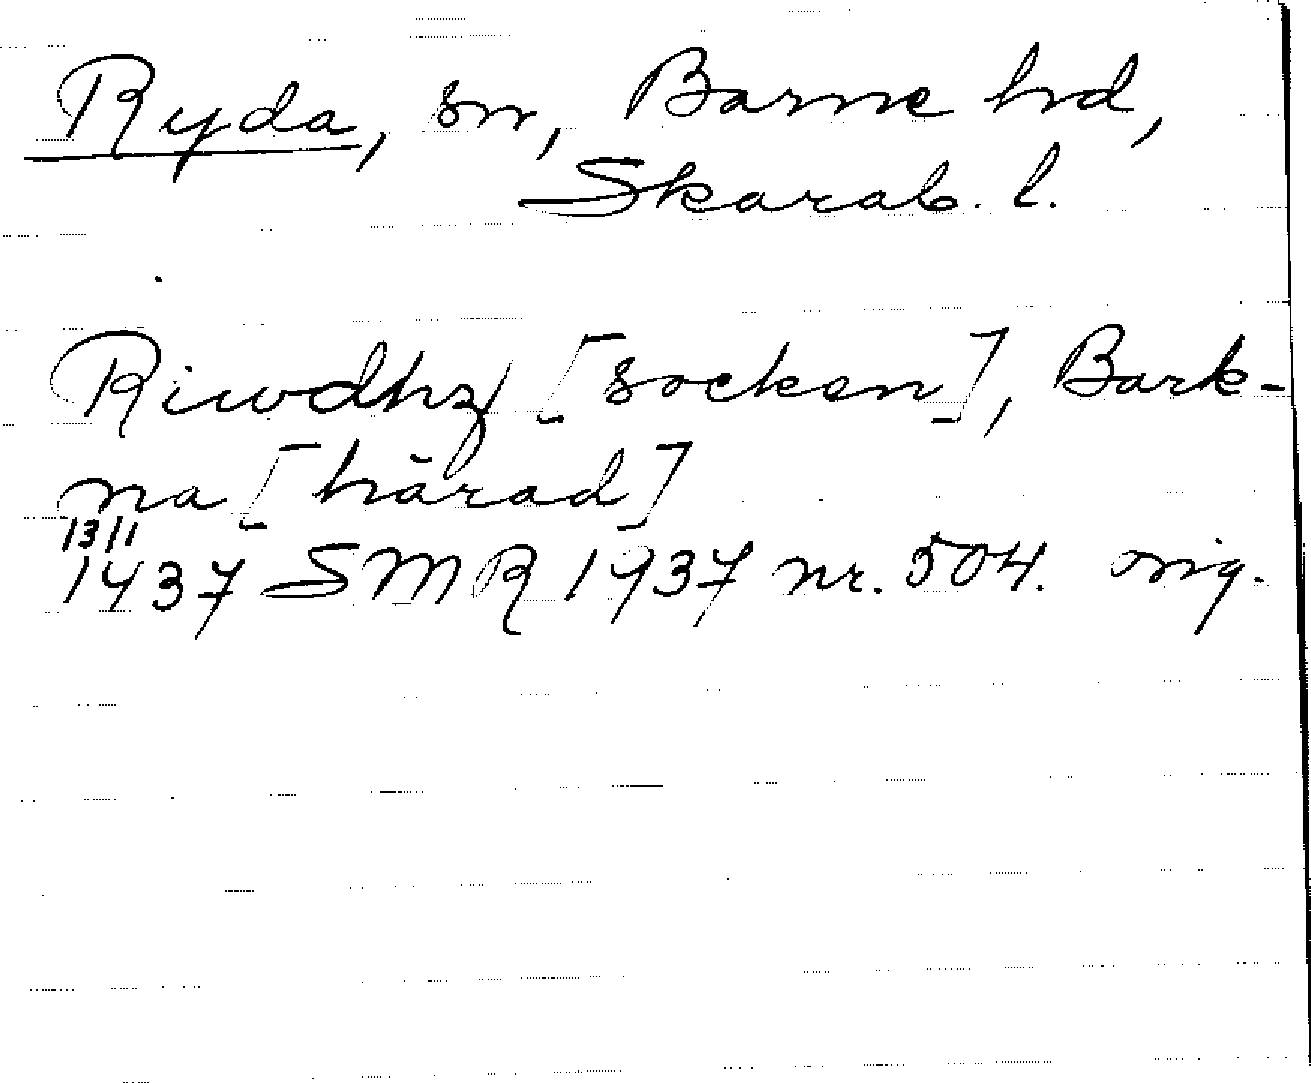 Ryda, sn, Barne hd,
Skarab. l.
Riwdhz [socken], Bark-
na [härad]
13/1
1437 SMR 1937 nr. 504. orig.